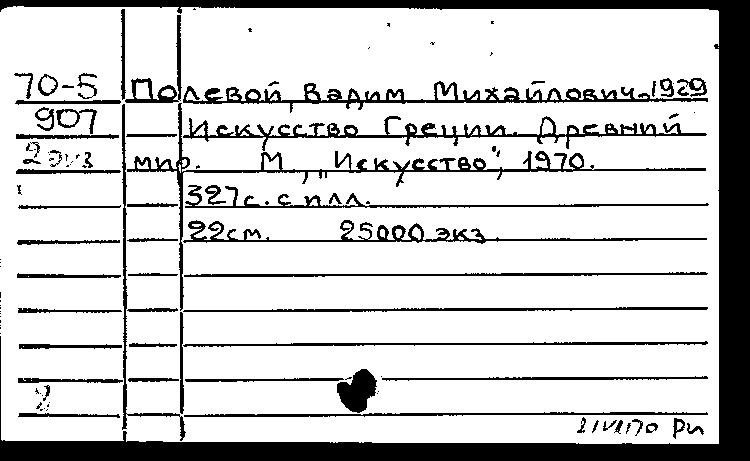 70-5 Полевой, Вадим Михайлович. 1929
907 Искусство Греции. Древний
2 экз мир. М., „Искусство", 1970.
327 с. с илл.
22 см. 25000 экз.